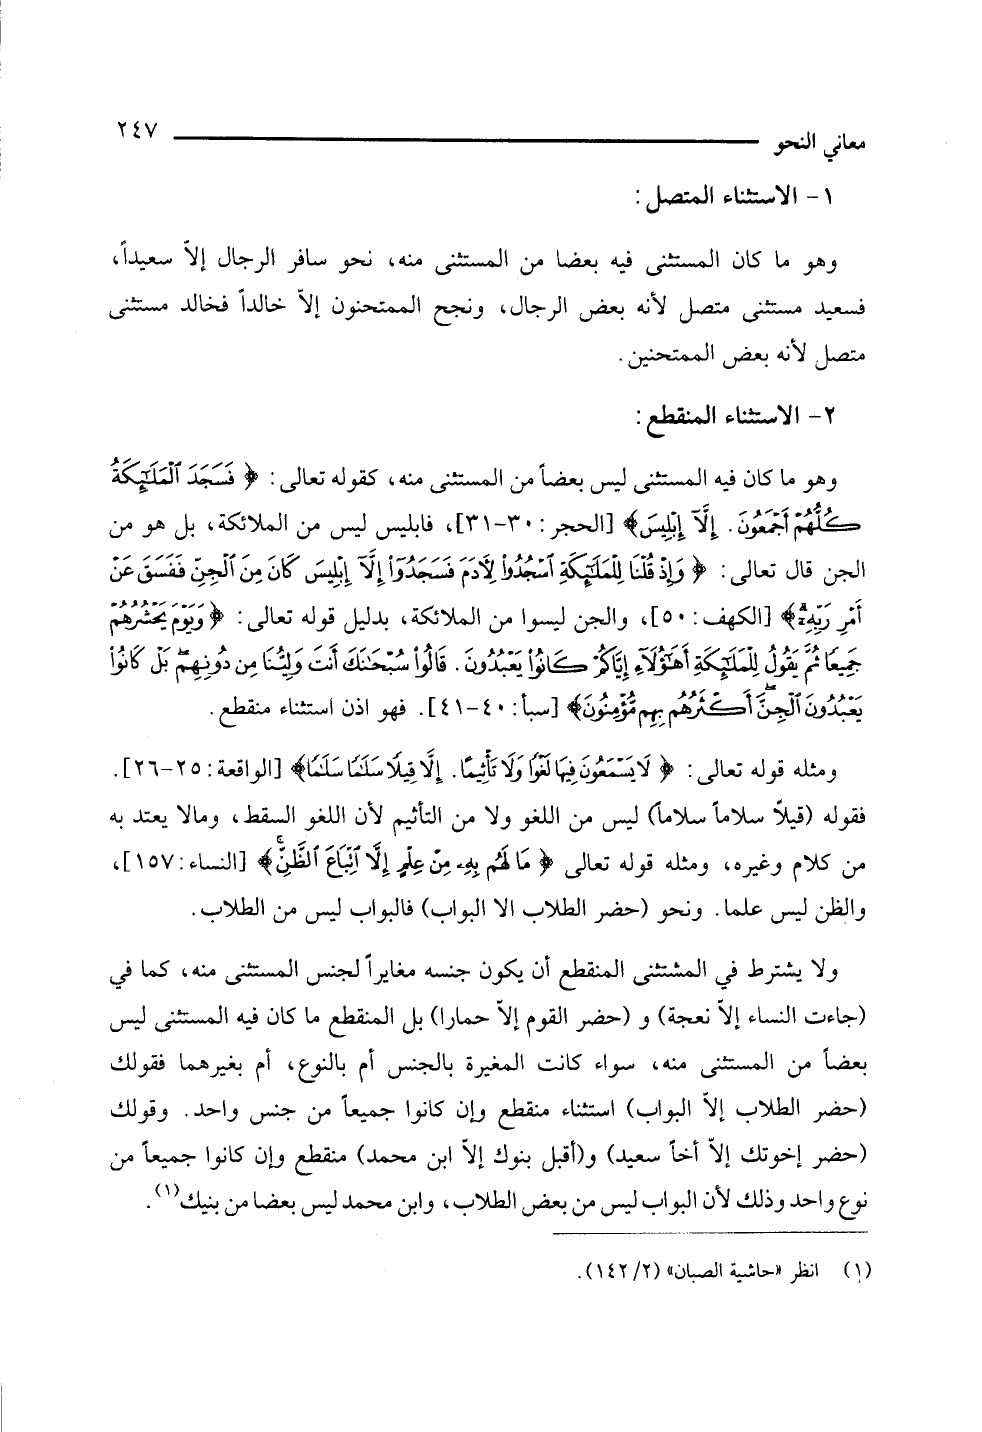 معاني النحو ٢٤٧
١- الاستثناء المتصل :
وهو ما كان المستثنى فيه بعضا من المستثنى منه، نحو سافر الرجال إلاّ سعيداً،
فسعيد مستثنى متصل لأنه بعض الرجال، ونجح الممتحنون إلاّ خالداً فخالد مستثنى
متصل لأنه بعض الممتحنين.
٢- الاستثناء المنقطع :
وهو ما كان فيه المستثنى ليس بعضاً من المستثنى منه، كقوله تعالى: ﴿ فَسَجَدَ ٱلْمَلَٰٓئِكَةُ
كُلُّهُمْ أَجْمَعُونَ. إِلَّآ إِبْلِيسَ﴾ [الحجر: ٣٠-٣١]، فابليس ليس من الملائكة، بل هو من
الجن قال تعالى: ﴿ وَإِذْ قُلْنَا لِلْمَلَٰٓئِكَةِ ٱسْجُدُوا۟ لِءَادَمَ فَسَجَدُوٓا۟ إِلَّآ إِبْلِيسَ كَانَ مِنَ ٱلْجِنِّ فَفَسَقَ عَنْ
أَمْرِ رَبِّهِۦٓ﴾ [الكهف: ٥٠]، والجن ليسوا من الملائكة، بدليل قوله تعالى: ﴿ وَيَوْمَ يَحْشُرُهُمْ
جَمِيعًا ثُمَّ يَقُولُ لِلْمَلَٰٓئِكَةِ أَهَٰٓؤُلَآءِ إِيَّاكُمْ كَانُوا۟ يَعْبُدُونَ. قَالُوا۟ سُبْحَٰنَكَ أَنتَ وَلِيُّنَا مِن دُونِهِم بَلْ كَانُوا۟
يَعْبُدُونَ ٱلْجِنَّ أَكْثَرُهُم بِهِم مُّؤْمِنُونَ﴾ [سبأ: ٤٠-٤١]. فهو اذن استثناء منقطع.
ومثله قوله تعالى: ﴿ لَا يَسْمَعُونَ فِيهَا لَغْوًا وَلَا تَأْثِيمًا. إِلَّا قِيلًا سَلَٰمًا سَلَٰمًا﴾ [الواقعة: ٢٥-٢٦].
فقوله (قيلاً سلاماً سلاماً) ليس من اللغو ولا من التأثيم لأن اللغو السقط، ومالا يعتد به
من كلام وغيره، ومثله قوله تعالى ﴿ مَا لَهُم بِهِۦ مِنْ عِلْمٍ إِلَّا ٱتِّبَاعَ ٱلظَّنِّ﴾ [النساء: ١٥٧]،
والظن ليس علما. ونحو (حضر الطلاب الا البواب) فالبواب ليس من الطلاب.
ولا يشترط في المشتثنى المنقطع أن يكون جنسه مغايراً لجنس المستثنى منه، كما في
(جاءت النساء إلاّ نعجة) و (حضر القوم إلاّ حمارا) بل المنقطع ما كان فيه المستثنى ليس
بعضاً من المستثنى منه، سواء كانت المغيرة بالجنس أم بالنوع، أم بغيرهما فقولك
(حضر الطلاب إلاّ البواب) استثناء منقطع وإن كانوا جميعاً من جنس واحد. وقولك
(حضر إخوتك إلاّ أخاً سعيد) و(أقبل بنوك إلاّ ابن محمد) منقطع وإن كانوا جميعاً من
نوع واحد وذلك لأن البواب ليس من بعض الطلاب، وابن محمد ليس بعضا من بنيك(١).
(١) انظر «حاشية الصبان» (١٤٢/٢).